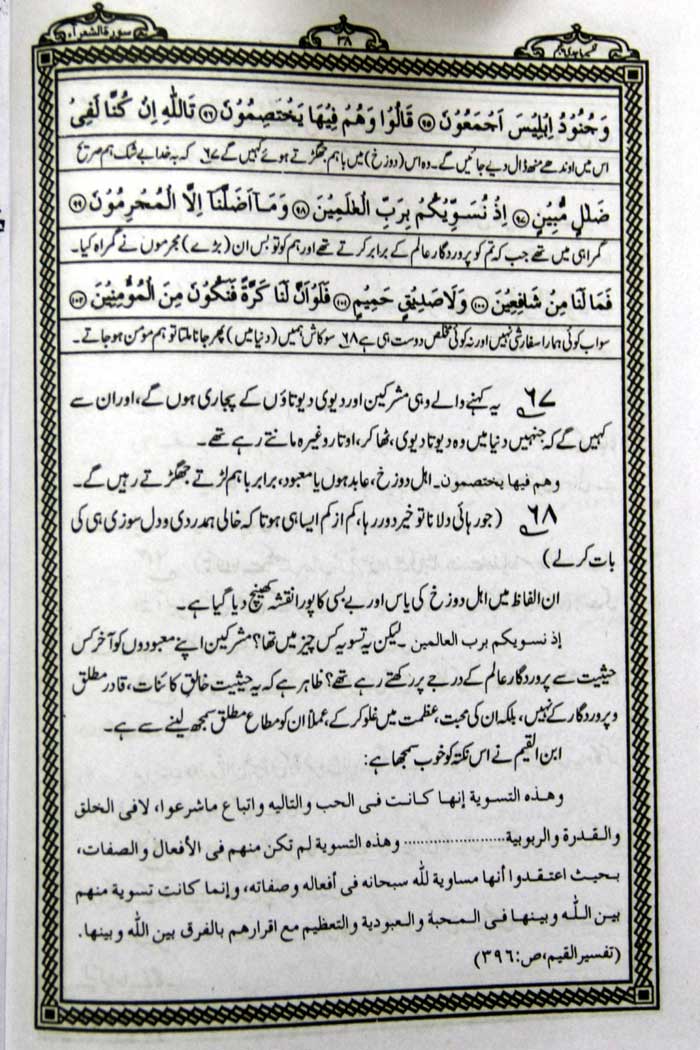 سورة الشعراء
٣٨
تفسیر ماجدی
وَجُنُوْدُ اِبْلِيْسَ اَجْمَعُوْنَ ۹۵ قَالُوْا وَهُمْ فِيْهَا يَخْتَصِمُوْنَ ۹۶ تَاللّٰهِ اِنْ كُنَّا لَفِيْ
اس میں اوندھے منھ ڈال دیے جائیں گے۔ وہ اس (دوزخ) میں باہم جھگڑتے ہوئے کہیں گے ۶۷ کہ بہ خدا بے شک ہم صریح
ضَلٰلٍ مُّبِيْنٍ ۹۷ اِذْ نُسَوِّيْكُمْ بِرَبِّ الْعٰلَمِيْنَ ۹۸ وَمَآ اَضَلَّنَآ اِلَّا الْمُجْرِمُوْنَ ۹۹
گمراہی میں تھے جب کہ تم کو پروردگار عالم کے برابر کرتے تھے اور ہم کو تو بس ان (بڑے) مجرموں نے گمراہ کیا۔
فَمَا لَنَا مِنْ شَافِعِيْنَ ۱۰۰ وَلَا صَدِيْقٍ حَمِيْمٍ ۱۰۱ فَلَوْ اَنَّ لَنَا كَرَّةً فَنَكُوْنَ مِنَ الْمُؤْمِنِيْنَ ۱۰۲
سو اب کوئی ہمارا سفارشی نہیں اور نہ کوئی مخلص دوست ہی ہے ۶۸ سو کاش ہمیں (دنیا میں) پھر جانا ملتا تو ہم مومن ہو جاتے۔
۶۷ یہ کہنے والے وہی مشرکین اور دیوی دیوتاؤں کے پجاری ہوں گے، اور ان سے
کہیں گے کہ جنہیں دنیا میں وہ دیوتا دیوی، ٹھاکر، اوتار وغیرہ مانتے رہے تھے۔
وهم فيها يختصمون۔ اہل دوزخ، عابد ہوں یا معبود، برابر باہم لڑتے جھگڑتے رہیں گے۔
۶۸ (جو رہائی دلانا تو خیر دور رہا، کم از کم ایسا ہی ہوتا کہ خالی ہمدردی و دل سوزی ہی کی
بات کر لے)
ان الفاظ میں اہل دوزخ کی یاس اور بے بسی کا پورا نقشہ کھینچ دیا گیا ہے۔
إذ نسويكم برب العالمين ۔ لیکن یہ تسویہ کس چیز میں تھا؟ مشرکین اپنے معبودوں کو آخر کس
حیثیت سے پروردگار عالم کے درجے پر رکھتے رہے تھے؟ ظاہر ہے کہ یہ حیثیت خالق کائنات، قادر مطلق
و پروردگار کے نہیں، بلکہ ان کی محبت، عظمت میں غلو کر کے، عملاً ان کو مطاع مطلق سمجھ لینے سے ہے۔
ابن القیم نے اس نکتہ کو خوب سمجھا ہے:
وهذه التسوية إنها كانت فى الحب والتاليه واتباع ماشرعوا، لافى الخلق
والقدرة والربوبية..................... وهذه التسوية لم تكن منهم فى الأفعال والصفات،
بحيث اعتقدوا أنها مساوية لله سبحانه فى أفعاله وصفاته، وإنما كانت تسوية منهم
بين الله وبينها فى المحبة والعبودية والتعظيم مع اقرارهم بالفرق بين الله وبينها.
(تفسیر القیم، ص:۳۹۶)